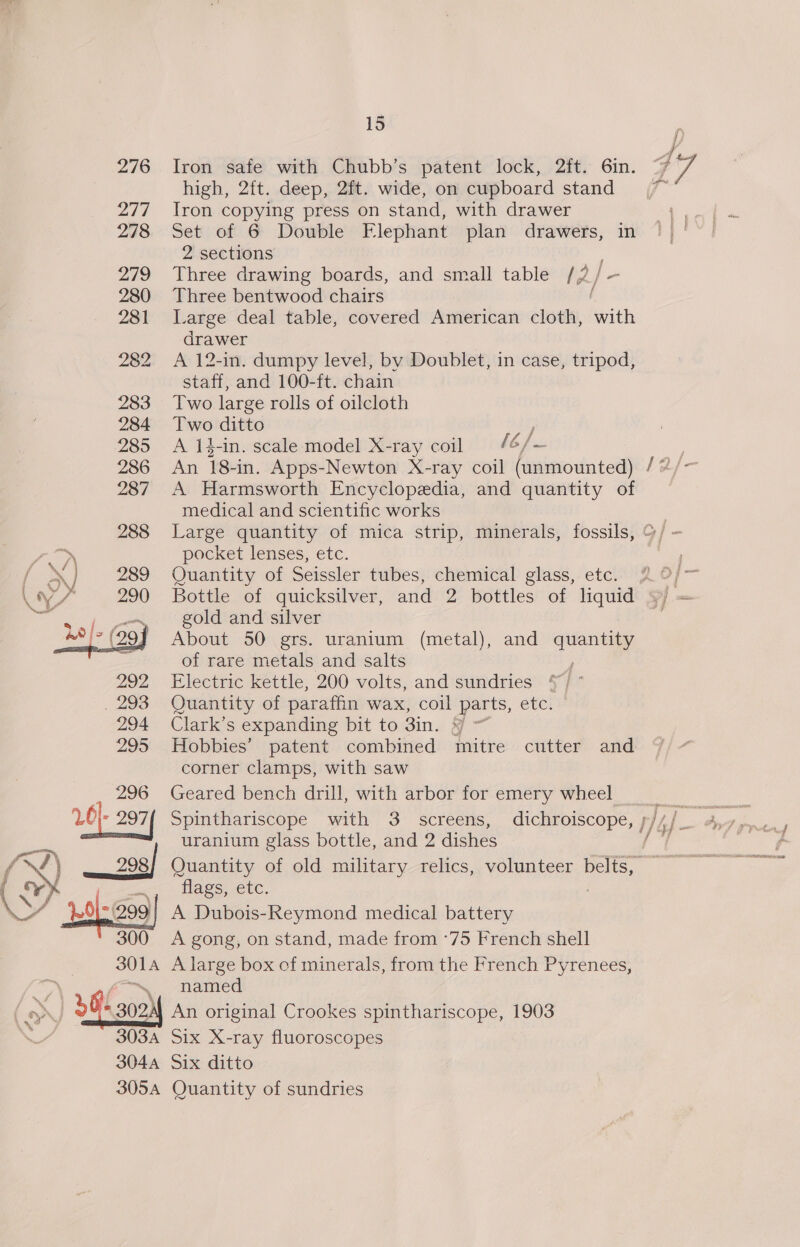 15
276 Iron safe with Chubb's patent lock, 2ft. 6in.
high, 2ft. deep, 2ft. wide, on cupboard stand
277 Iron copying press on stand, with drawer
278 Set of 6 Double Elephant plan drawers, in
2 sections
279 Three drawing boards, and small table 12/-
280 Three bentwood chairs
281 Large deal table, covered American cloth, with
drawer
282 A 12-in. dumpy level, by Doublet, in case, tripod,
staff, and 100-ft. chain
283 Two large rolls of oilcloth
284 Two ditto
285 A 1½-in. scale model X-ray coil 16/-
286 An 18-in. Apps-Newton X-ray coil (unmounted) 12/-
287 A Harmsworth Encyclopædia, and quantity of
medical and scientific works
288 Large quantity of mica strip, minerals, fossils,
pocket lenses, etc.
289 Quantity of Seissler tubes, chemical glass, etc. 20/-
290 Bottle of quicksilver, and 2 bottles of liquid
gold and silver
20/- 291 About 50 grs. uranium (metal), and quantity
of rare metals and salts
292 Electric kettle, 200 volts, and sundries
293 Quantity of paraffin wax, coil parts, etc.
294 Clark's expanding bit to 3in.
295 Hobbies' patent combined mitre cutter and
corner clamps, with saw
296 Geared bench drill, with arbor for emery wheel
297 Spinthariscope with 3 screens, dichroiscope,
uranium glass bottle, and 2 dishes
298 Quantity of old military relics, volunteer belts,
flags, etc.
299 A Dubois-Reymond medical battery
300 A gong, on stand, made from ·75 French shell
301A A large box of minerals, from the French Pyrenees,
named
302A An original Crookes spinthariscope, 1903
303A Six X-ray fluoroscopes
304A Six ditto
305A Quantity of sundries